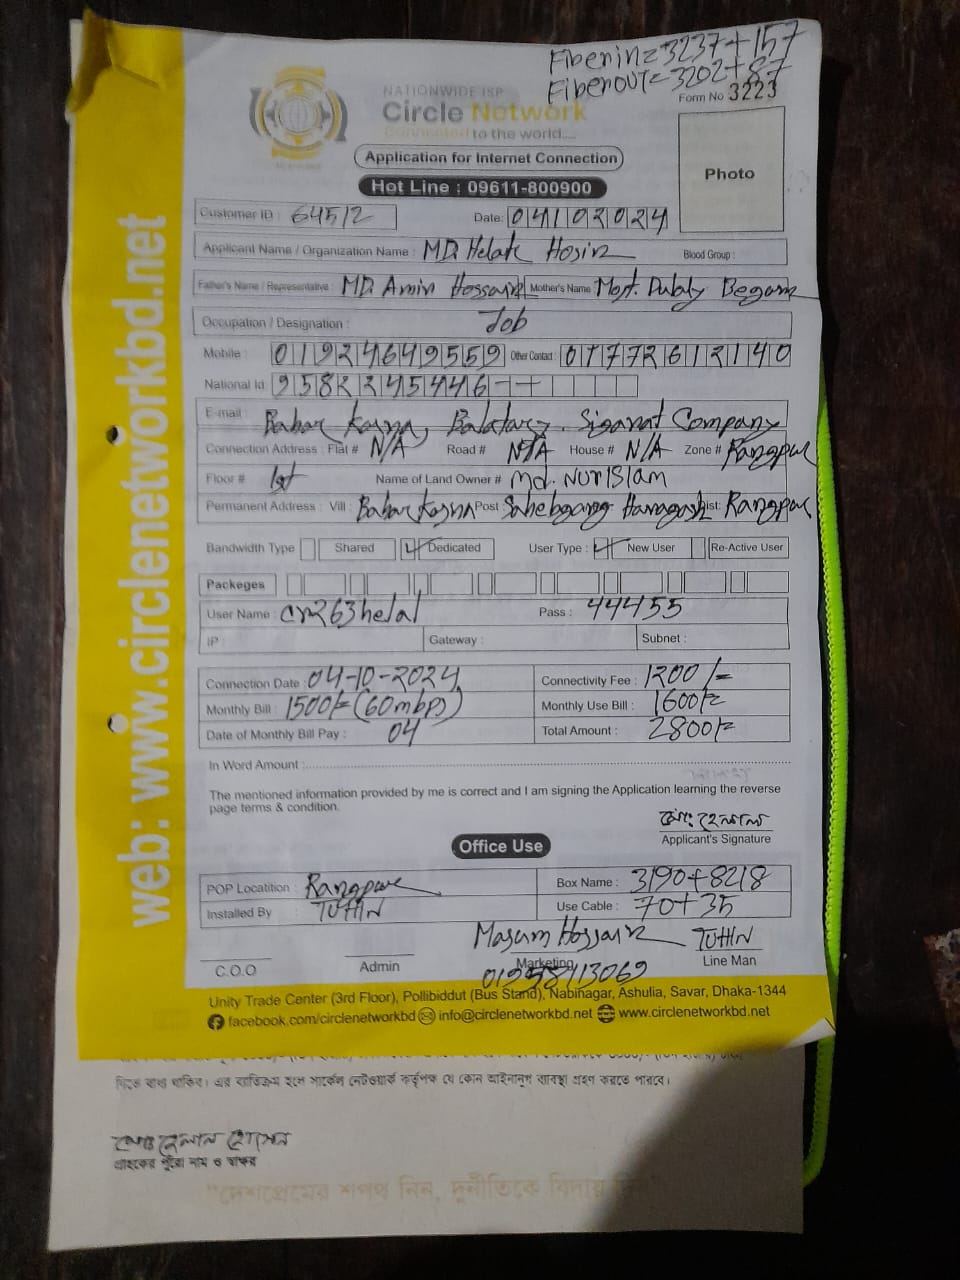 Fiberin=3237+157
Fiberout=3202+87
Form No 3223
NATIONWIDE ISP
Circle Network
Connected to the world....
Application for Internet Connection
Photo
Hot Line : 09611-800900
Customer ID : 64512
Date: 04102024
Applicant Name / Organization Name : MD. Helal Hosin
Blood Group :
Father's Name / Representative : MD. Amin Hossain Mother's Name Most. Dulaly Begam
Occupation / Designation : Job
Mobile : 01924649559 Other Contact : 01772612140
National Id: 9582245446
E-mail : Babar Kasna, Balatary. Siganat Company
Connection Address : Flat # N/A Road # N/A House # N/A Zone # Rangpur
Floor # 1st Name of Land Owner # Md. Nurislam
Permanent Address : Vill : Babar Kasna Post : Sahebgang Haragash Dist: Rangpur
Bandwidth Type Shared Dedicated User Type : New User Re-Active User
Packeges
User Name : cr263helal Pass : 44455
IP : Gateway : Subnet :
Connection Date : 04-10-2024 Connectivity Fee : 1200/=
Monthly Bill : 1500/= (60mbps) Monthly Use Bill : 1600/=
Date of Monthly Bill Pay : 04 Total Amount : 2800/=
In Word Amount :
The mentioned information provided by me is correct and I am signing the Application learning the reverse
page terms & condition.
মোঃ হেলাল
Applicant's Signature
Office Use
POP Locatition : Rangpur Box Name : 3190+8218
Installed By : TUHIN Use Cable : 70+35
Masum Hossain TUHIN
C.O.O Admin Marketing Line Man
01958413069
Unity Trade Center (3rd Floor), Pollibiddut (Bus Stand), Nabinagar, Ashulia, Savar, Dhaka-1344
facebook.com/circlenetworkbd info@circlenetworkbd.net www.circlenetworkbd.net
web: www.circlenetworkbd.net
দিতে বাধ্য থাকিব। এর ব্যতিক্রম হলে সার্কেল নেটওয়ার্ক কর্তৃপক্ষ যে কোন আইনানুগ ব্যবস্থা গ্রহণ করতে পারবে।
মোঃ হেলাল হোসেন
গ্রাহকের পুরো নাম ও স্বাক্ষর
"দেশপ্রেমের শপথ নিন, দুর্নীতিকে বিদায় দিন"